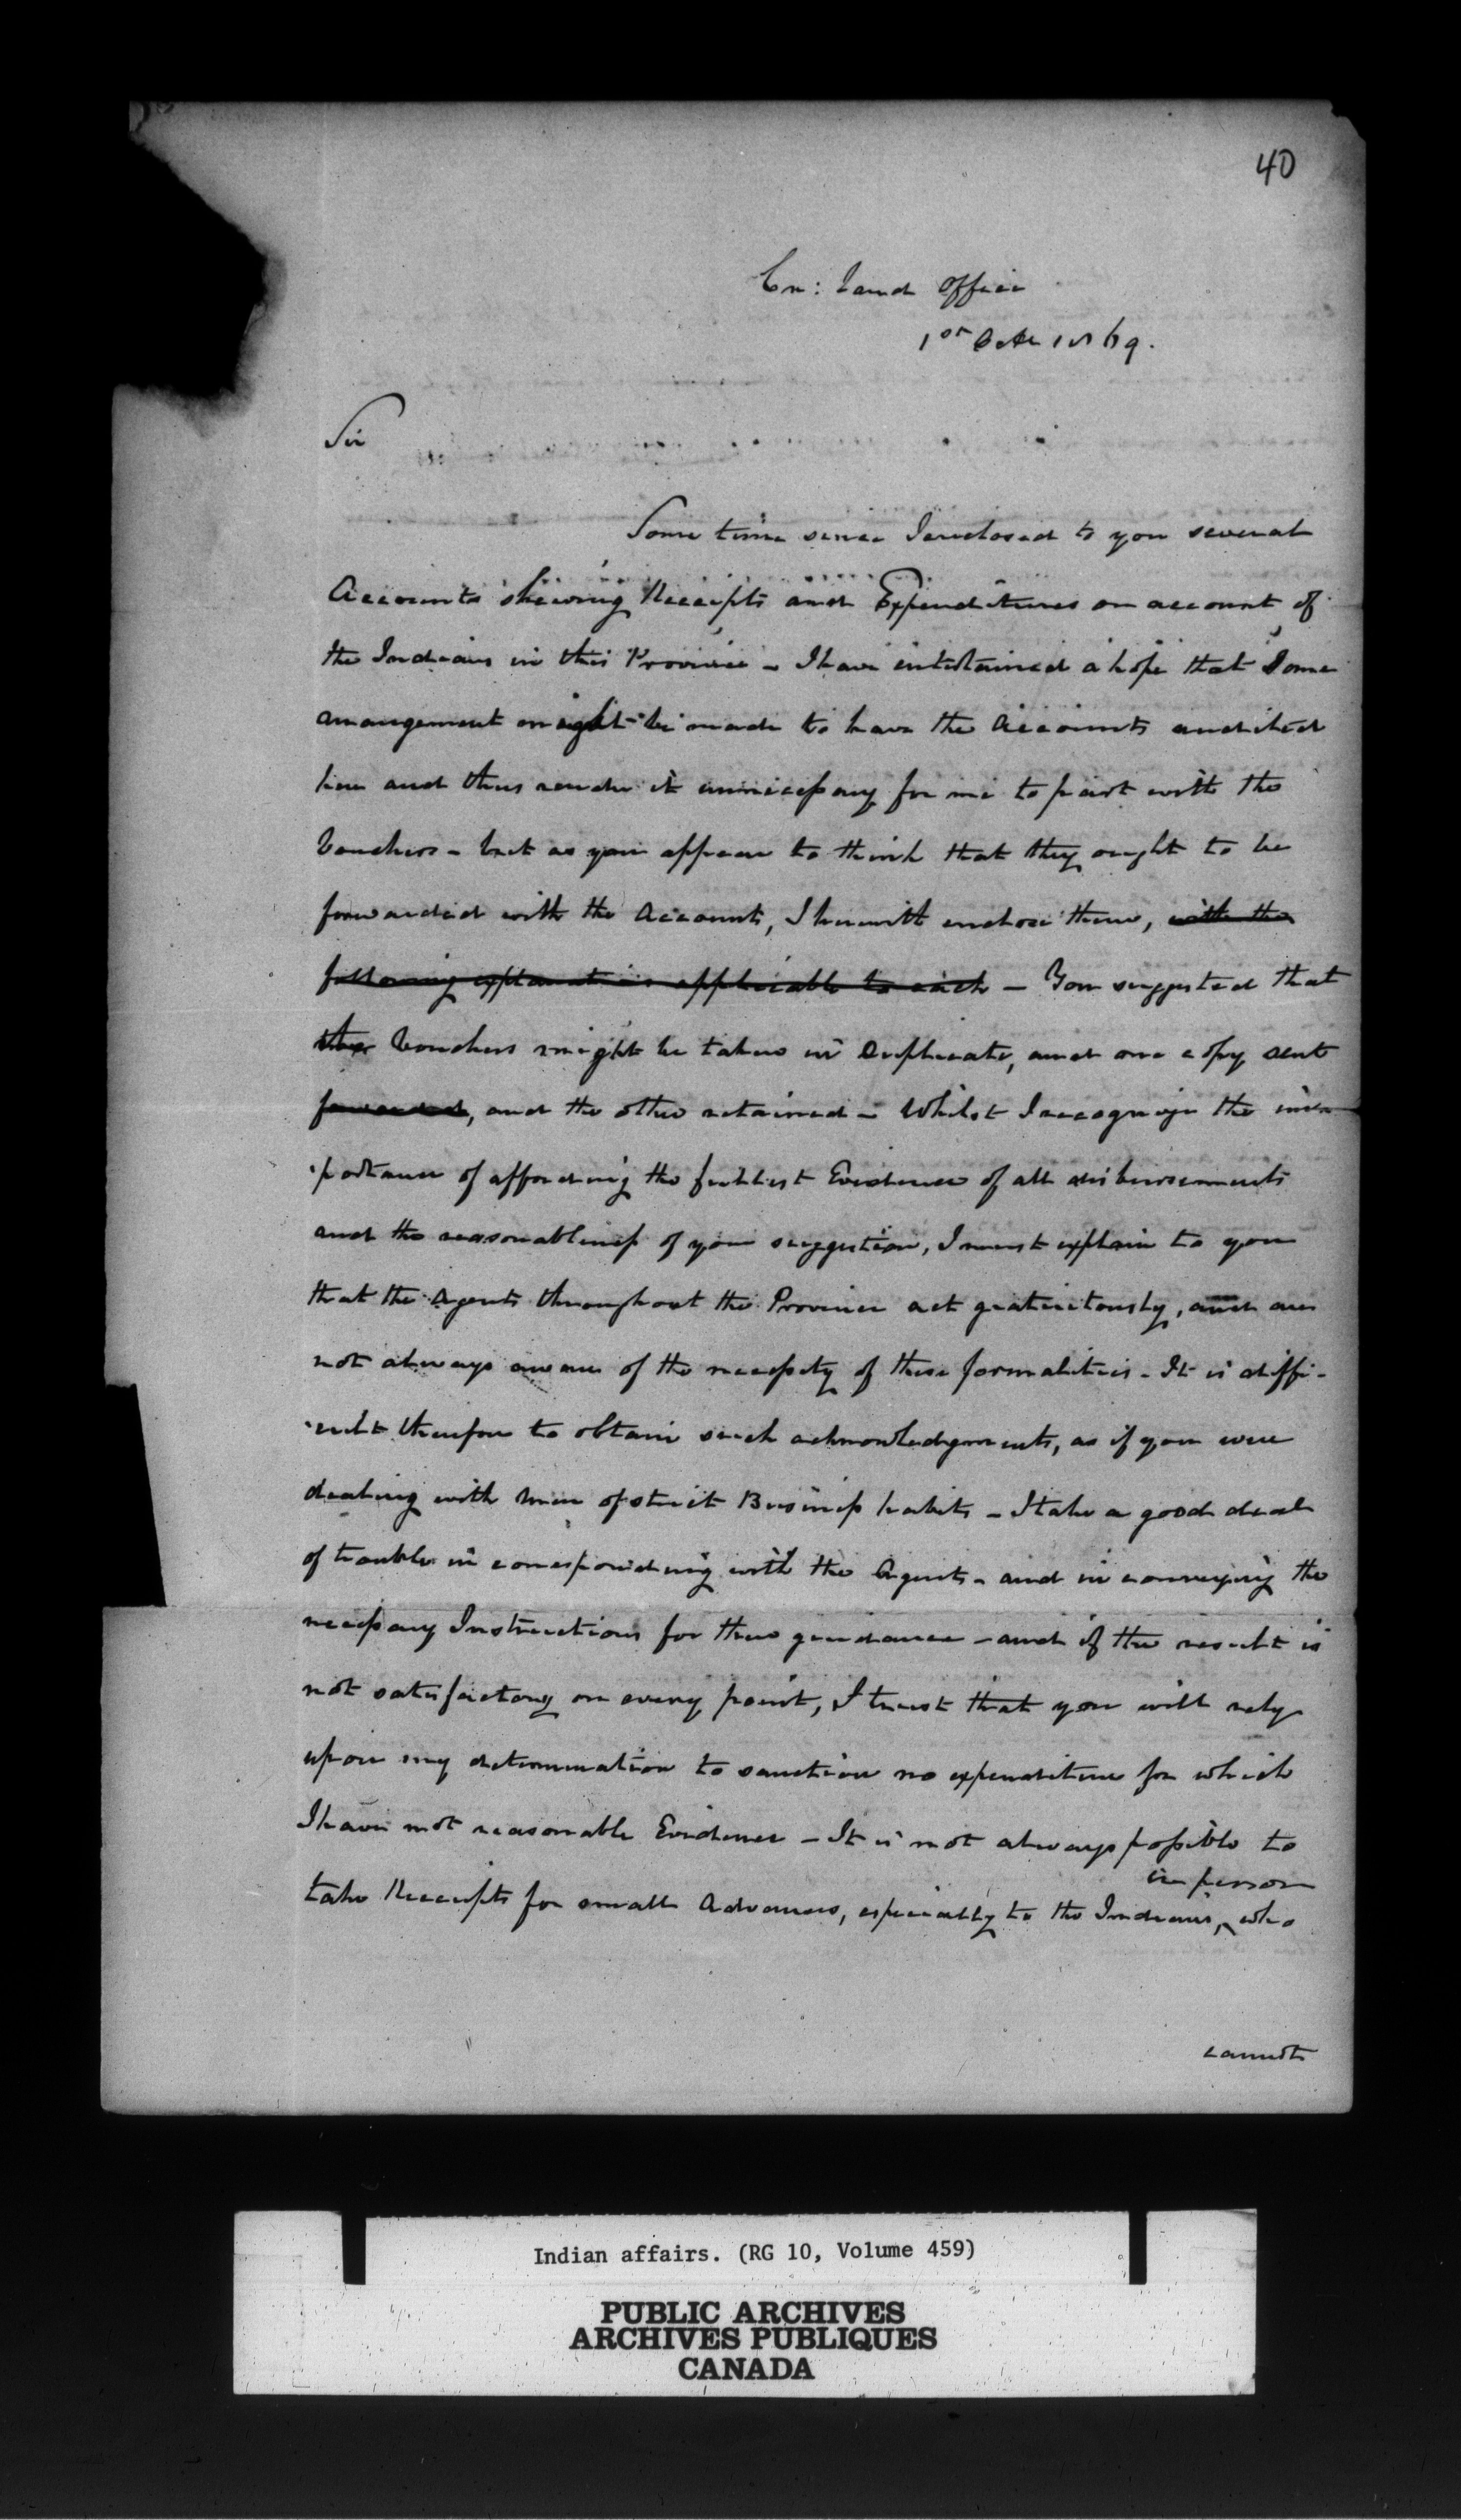 40
Cn: Land Office
1st Octr 1869.
Sir
Some time since I enclosed to you several
Accounts shewing Receipts and Expenditures on account of
the Indians in this Province - I have entertained a hope that some
arrangement might be made to have the Accounts audited
here and thus render it unnecessary for me to part with the
Vouchers - but as you appear to think that they ought to be
forwarded with the Accounts, I herewith enclose them, with the
following explanations applicable to each - You suggested that
these Vouchers might be taken in Duplicate, and one copy sent
forwarded, and the other retained - Whilst I recognize the im
portance of affording the fullest Evidence of all disbursements
and the reasonableness of your suggestion, I must explain to you
that the Agents throughout the Province act gratuitously, and are
not always aware of the necessity of these formalities - It is diffi-
cult therefore to obtain such acknowledgments, as if you were
dealing with Men of strict Business habits - I take a good deal
of trouble in corresponding with the Agents - and in conveying the
necessary Instructions for their guidance - and if the result is
not satisfactory on every point, I trust that you will rely
upon my determination to sanction no expenditure for which
I have not reasonable Evidence - It is not always possible to
take Receipts for small Advances, especially to the Indians, in person who
cannot
Indian affairs. (RG 10, Volume 459)
PUBLIC ARCHIVES
ARCHIVES PUBLIQUES
CANADA